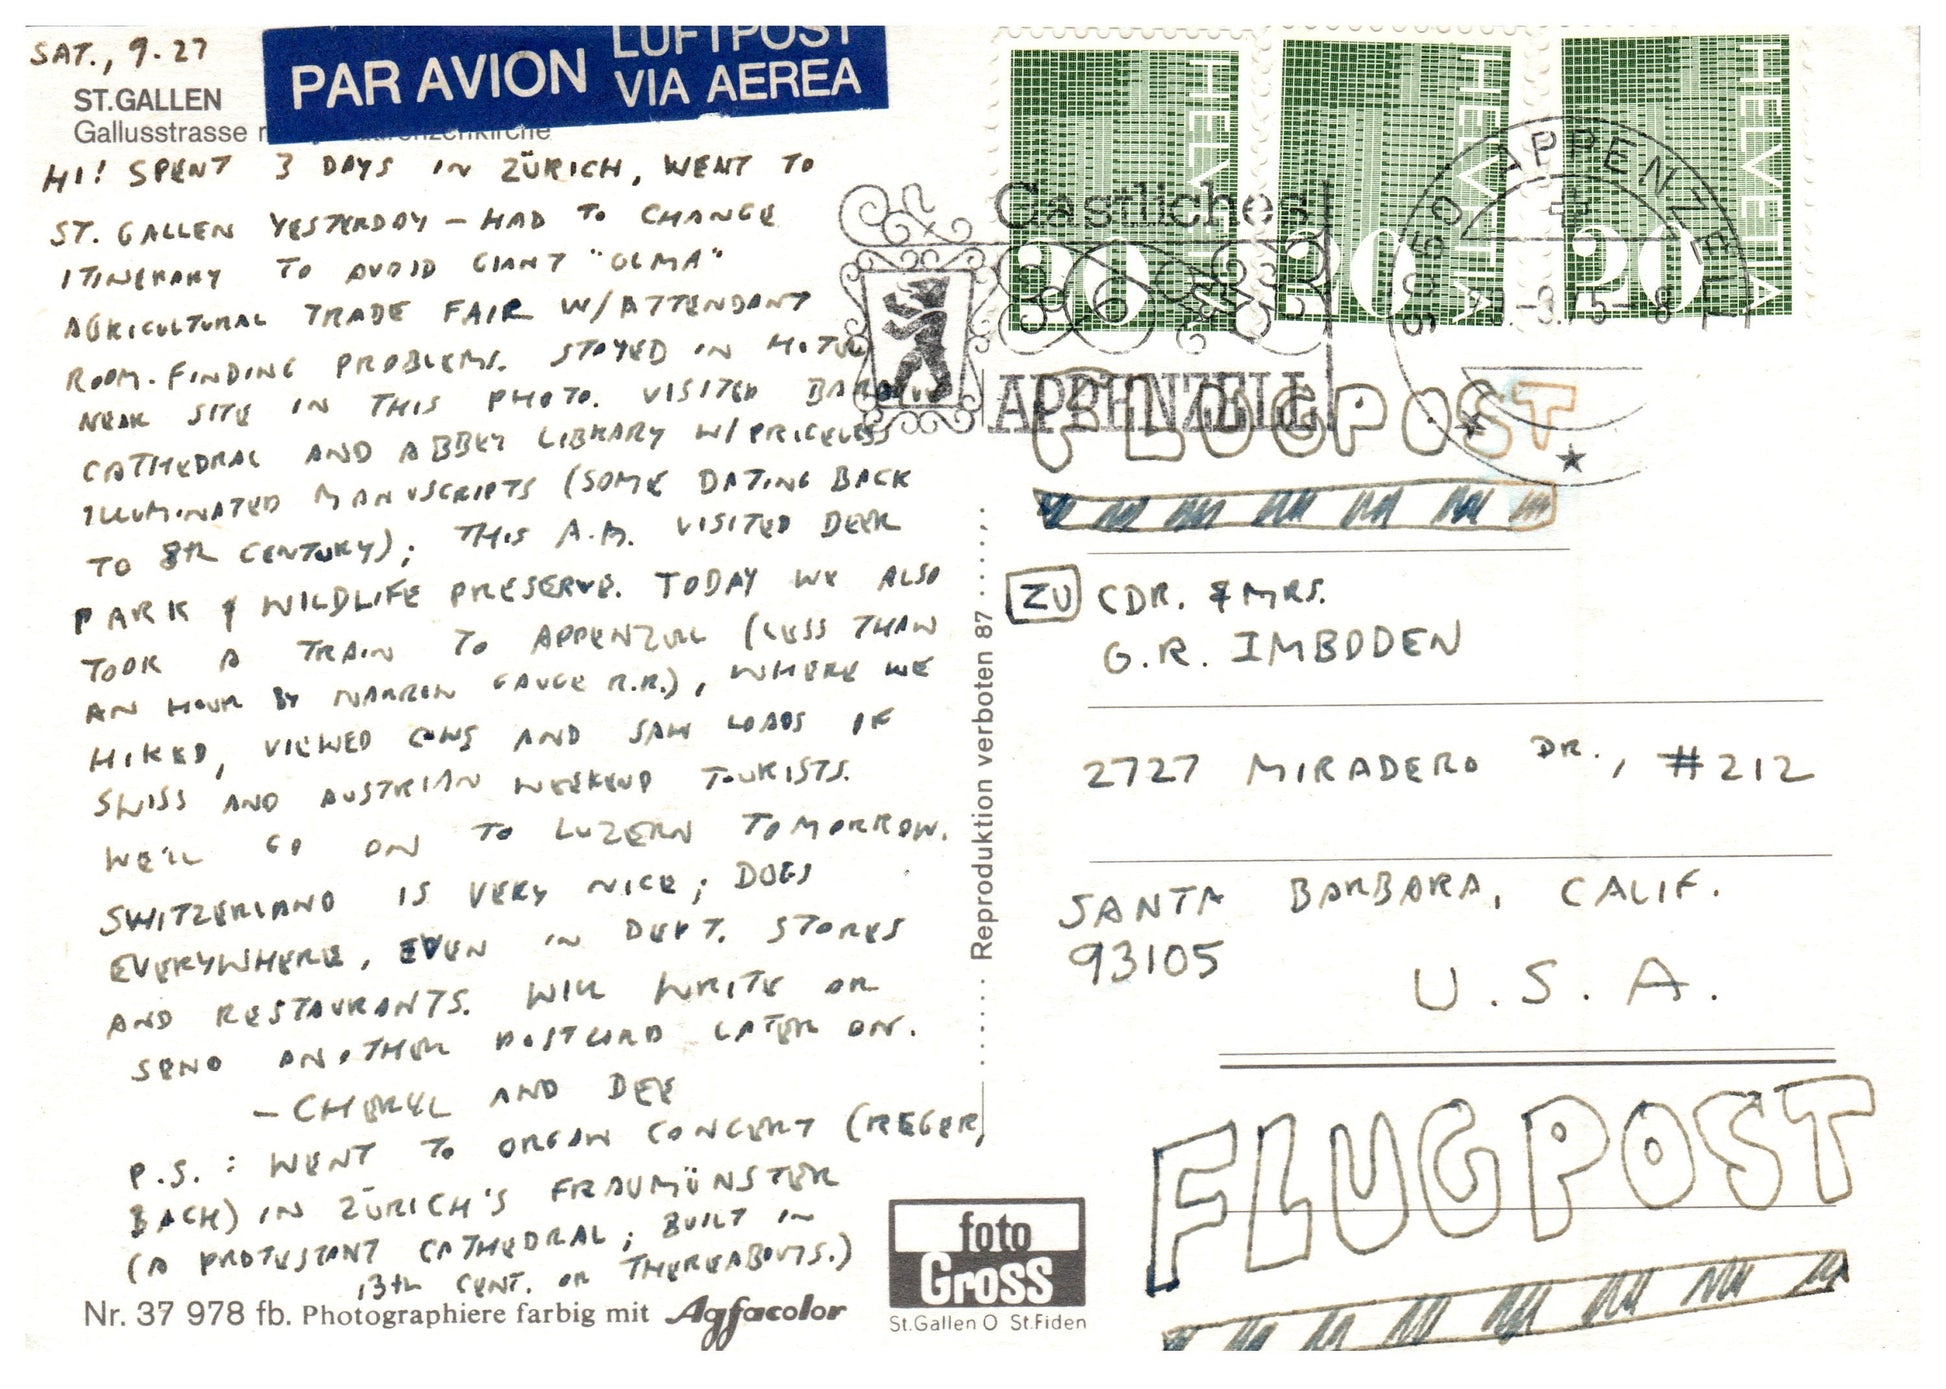 SAT., 9-27
PAR AVION LUFTPOST
VIA AEREA
ST.GALLEN
Gallusstrasse
HI! SPENT 3 DAYS IN ZÜRICH, WENT TO
ST. GALLEN YESTERDAY – HAD TO CHANGE
ITINERARY TO AVOID GIANT "OLMA"
AGRICULTURAL TRADE FAIR W/ATTENDANT
ROOM-FINDING PROBLEMS. STAYED IN HOTEL
NEAR SITE IN THIS PHOTO. VISITED BAROQUE
CATHEDRAL AND ABBEY LIBRARY W/PRICELESS
ILLUMINATED MANUSCRIPTS (SOME DATING BACK
TO 8th CENTURY); THIS A.M. VISITED DEER
PARK & WILDLIFE PRESERVE. TODAY WE ALSO
TOOK A TRAIN TO APPENZELL (LESS THAN
AN HOUR BY NARROW GAUGE R.R.), WHERE WE
HIKED, VIEWED COWS AND SAW LOADS OF
SWISS AND AUSTRIAN WEEKEND TOURISTS.
WE'LL GO ON TO LUZERN TOMORROW.
SWITZERLAND IS VERY NICE; DOGS
EVERYWHERE, EVEN IN DEPT. STORES
AND RESTAURANTS. WILL WRITE OR
SEND ANOTHER POSTCARD LATER ON.
– CHERYL AND DEE
P.S.: WENT TO ORGAN CONCERT (REGER,
BACH) IN ZÜRICH'S FRAUMÜNSTER
(A PROTESTANT CATHEDRAL; BUILT IN
13th CENT. OR THEREABOUTS.)
Nr. 37 978 fb. Photographiere farbig mit Agfacolor
Reproduktion verboten 87
foto
Gross
St.Gallen O St.Fiden
HELVETIA 20
HELVETIA 20
HELVETIA 50
Gastliches
APPENZELL
9050 APPENZELL
FLUGPOST
ZU CDR. & MRS.
G.R. IMBODEN
2727 MIRADERO DR., #212
SANTA BARBARA, CALIF.
93105
U.S.A.
FLUGPOST